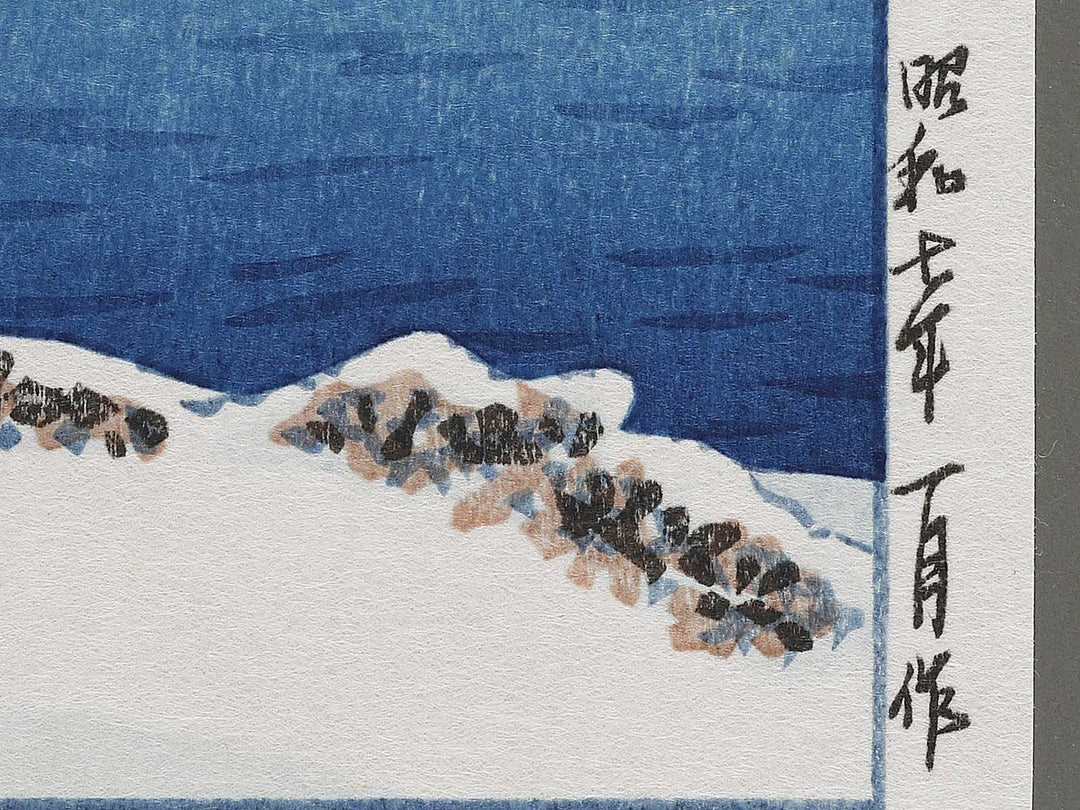 昭和七年 一月作